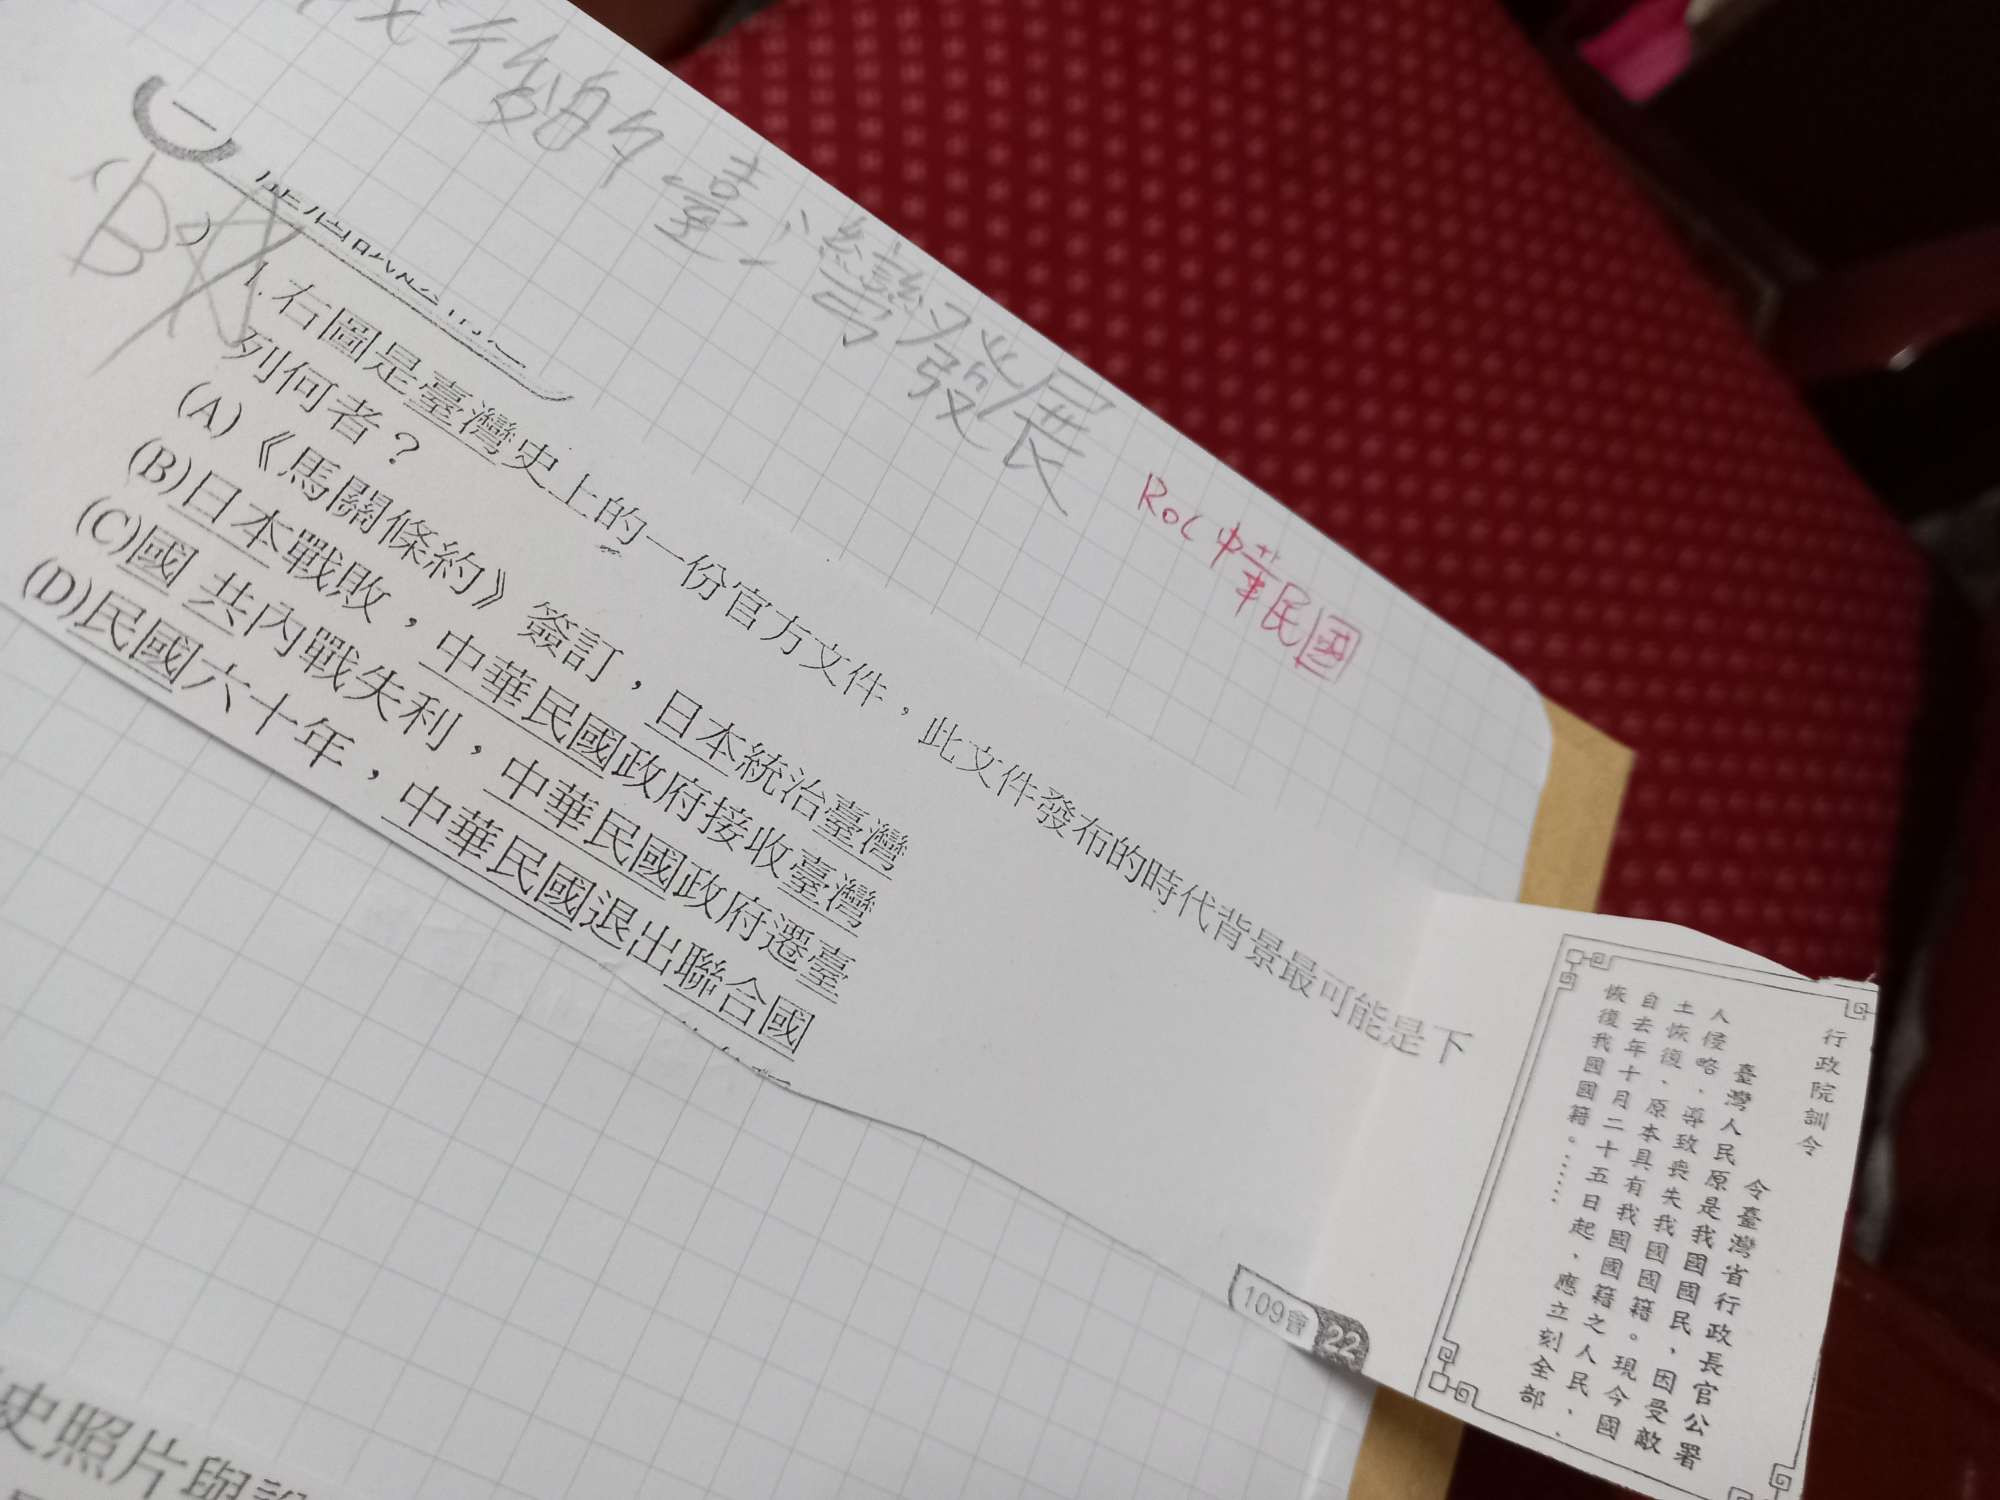 臺灣發展
ROC中華民國
1.右圖是臺灣史上的一份官方文件，此文件發布的時代背景最可能是下
列何者？
(A)《馬關條約》簽訂，日本統治臺灣
(B)日本戰敗，中華民國政府接收臺灣
(C)國 共內戰失利，中華民國政府遷臺
(D)民國六十年，中華民國退出聯合國
109會 22
行政院訓令
令臺灣省行政長官公署
臺灣人民原是我國國民，因受敵
人侵略，導致喪失我國國籍。現今國
土恢復，原本具有我國國籍之人民，
自去年十月二十五日起，應立刻全部
恢復我國國籍。……
史照片與